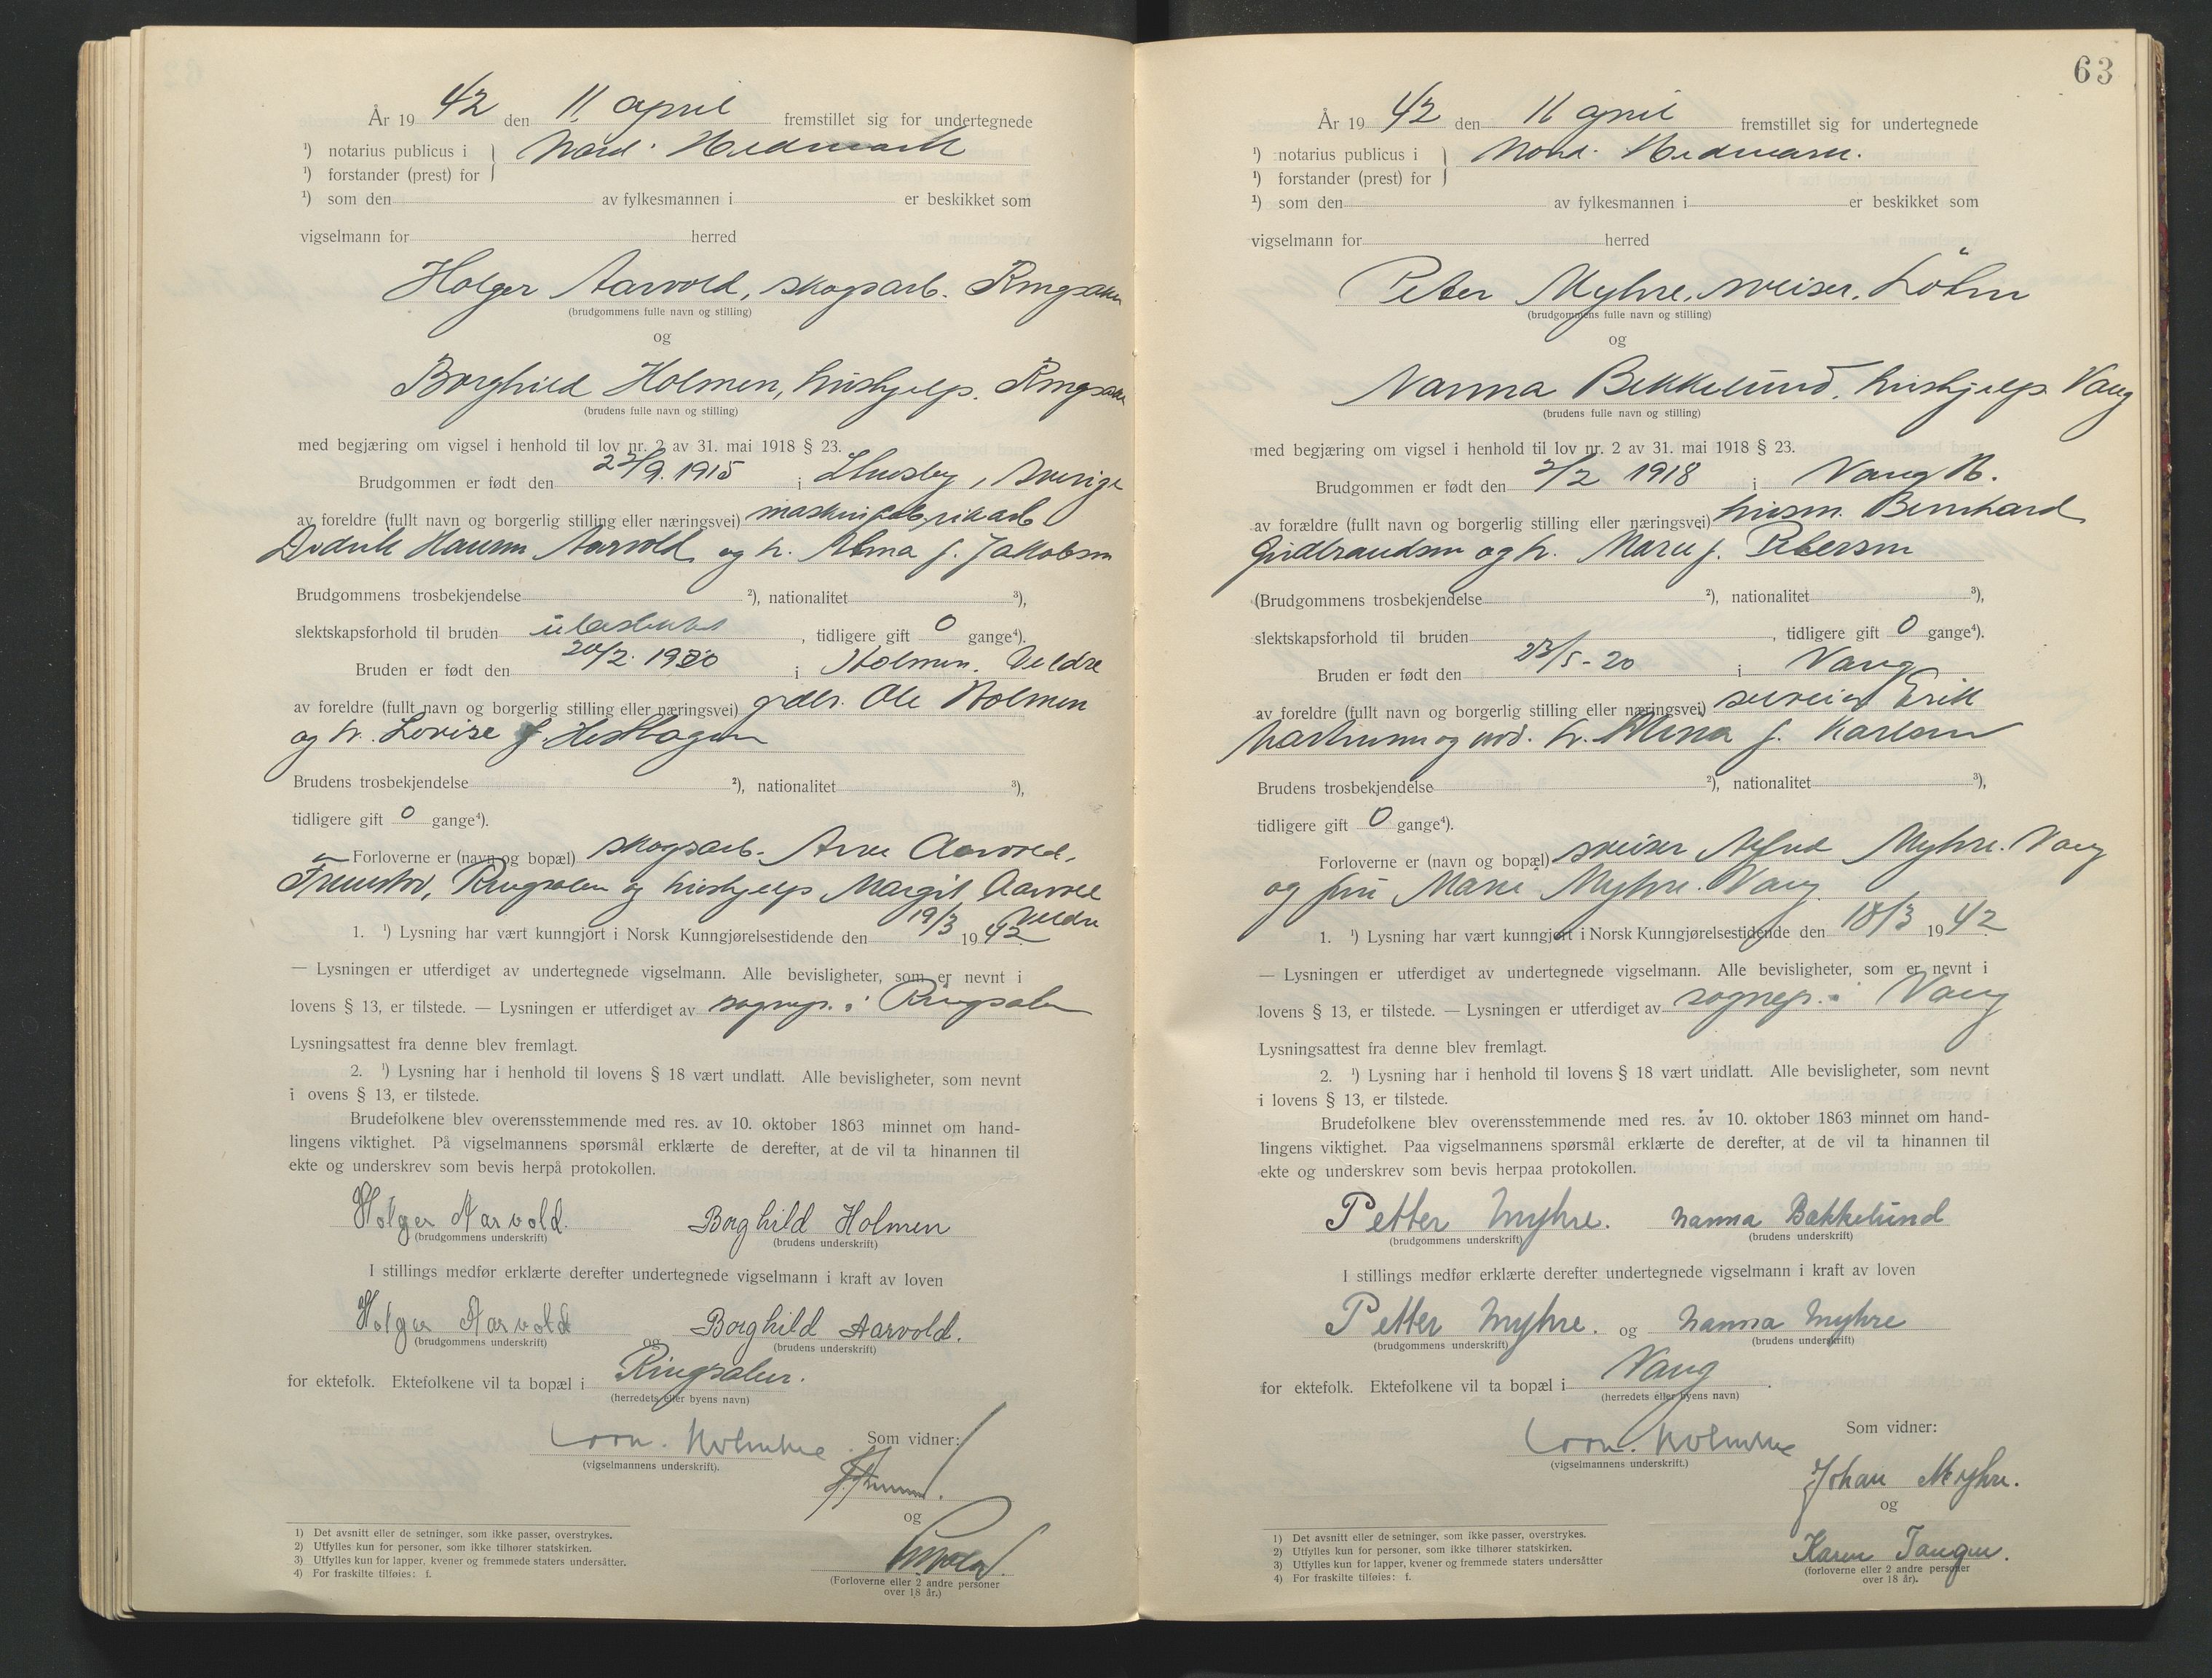 År 19 42 den 11 april fremstillet sig for undertegnede
¹) notarius publicus i } Nord-Hedmark
¹) forstander (prest) for
¹) som den av fylkesmannen i er beskikket som
vigselmann for herred
Holger Aarvold, skogsarb. Ringsaker
(brudgommens fulle navn og stilling)
og
Borghild Holmen, hushjelp. Ringsaker
(brudens fulle navn og stilling)
med begjæring om vigsel i henhold til lov nr. 2 av 31. mai 1918 § 23.
Brudgommen er født den 22/9. 1915 i Husby, Sverige
av foreldre (fullt navn og borgerlig stilling eller næringsvei) maskinfabrikarb
Didrik Aarvold og h. Alma f. Jakobsen
Brudgommens trosbekjendelse ²), nationalitet ³),
slektskapsforhold til bruden ubeslektet, tidligere gift 0 gange⁴).
Bruden er født den 20/2. 1920 i Holmen. Veldre
av foreldre (fullt navn og borgerlig stilling eller næringsvei) grdbr. Ole Holmen
og h. Lovise f. Hesthagen
Brudens trosbekjendelse ²), nationalitet ³),
tidligere gift 0 gange⁴).
Forloverne er (navn og bopæl) skogsarb. Arne Aarvold,
Ringsaker og hushjelp Margit Aarvold
Veldre
1. ¹) Lysning har vært kunngjort i Norsk Kunngjørelsestidende den 19/3 1942
— Lysningen er utferdiget av undertegnede vigselmann. Alle bevisligheter, som er nevnt i
lovens § 13, er tilstede. — Lysningen er utferdiget av sognepr. i Ringsaker
Lysningsattest fra denne blev fremlagt.
2. ¹) Lysning har i henhold til lovens § 18 vært undlatt. Alle bevisligheter, som nevnt
i ovens § 13, er tilstede.
Brudefolkene blev overensstemmende med res. av 10. oktober 1863 minnet om hand-
lingens viktighet. På vigselmannens spørsmål erklærte de derefter, at de vil ta hinannen til
ekte og underskrev som bevis herpå protokollen.
Holger Aarvold. Borghild Holmen
(brudgommens underskrift) (brudens underskrift)
I stillings medfør erklærte derefter undertegnede vigselmann i kraft av loven
Holger Aarvold og Borghild Aarvold.
(brudgommens underskrift) (brudens underskrift)
for ektefolk. Ektefolkene vil ta bopæl i Ringsaker.
(herredets eller byens navn)
Som vidner:
Corn. Holmboe
(vigselmannens underskrift).
og
(Forloverne eller 2 andre personer
over 18 år.)
1) Det avsnitt eller de setninger, som ikke passer, overstrykes.
2) Utfylles kun for personer, som ikke tilhører statskirken.
3) Utfylles kun for lapper, kvener og fremmede staters undersåtter.
4) For fraskilte tilføies: f.
63
År 19 42 den 11 april fremstillet sig for undertegnede
¹) notarius publicus i } Nord-Hedmark.
¹) forstander (prest) for
¹) som den av fylkesmannen i er beskikket som
vigselmann for herred
Peter Myhre, sveiser, Löten
(brudgommens fulle navn og stilling)
og
Nanna Bekkelund, hushjelp. Vang
(brudens fulle navn og stilling)
med begjæring om vigsel i henhold til lov nr. 2 av 31. mai 1918 § 23.
Brudgommen er født den 2/2 1918 i Vang H.
av forældre (fullt navn og borgerlig stilling eller næringsvei) husm. Bernhard
Gudbrandsen og h. Marie f. Petersen
(Brudgommens trosbekjendelse ²), nationalitet ³),
slektskapsforhold til bruden , tidligere gift 0 gange⁴).
Bruden er født den 23/5-20 i Vang
av foreldre (fullt navn og borgerlig stilling eller næringsvei) Erik
og h. f. Karlsen
Brudens trosbekjendelse ²), nationalitet ³),
tidligere gift 0 gange⁴).
Forloverne er (navn og bopæl) sveiser Alfred Myhre. Vang
og fru Marie Myhre. Vang
1. ¹) Lysning har vært kunngjort i Norsk Kunngjørelsestidende den 18/3 1942
— Lysningen er utferdiget av undertegnede vigselmann. Alle bevisligheter, som er nevnt i
lovens § 13, er tilstede. — Lysningen er utferdiget av sognepr. i Vang
Lysningsattest fra denne blev fremlagt.
2. ¹) Lysning har i henhold til lovens § 18 vært undlatt. Alle bevisligheter, som nevnt
i lovens § 13, er tilstede.
Brudefolkene blev overensstemmende med res. åv 10. oktober 1863 minnet om hand-
lingens viktighet. Paa vigselmannens spørsmål erklærte de derefter, at de vil ta hinannen til
ekte og underskrev som bevis herpaa protokollen.
Petter Myhre. Nanna Bakkelund
(brudgommens underskrift) (brudens underskrift)
I stillings medfør erklærte derefter undertegnede vigselmann i kraft av loven
Petter Myhre. og Nanna Myhre
(brudgommens underskrift) (brudens underskrift)
for ektefolk. Ektefolkene vil ta bopæl i Vang.
(herredets eller byens navn)
Som vidner:
Corn. Holmboe
(vigselmannens underskrift.)
Johan Myhre.
og
Karen Tangen.
(forloverne eller 2 andre personer
over 18 år).
1) Det avsnitt eller de setninger, som ikke passer, overstrykes.
2) Utfylles kun for personer, som ikke tilhører statskirken.
3) Utfylles kun for lapper, kvener og fremmede staters undersåtter
4) For fraskilte tilføies: f.